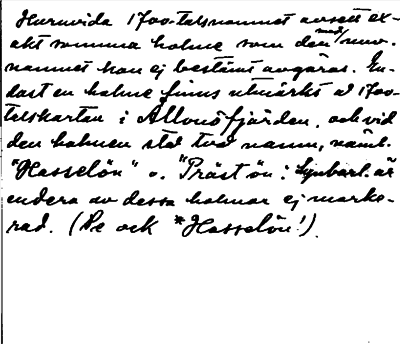 Huruvida 1700-talsnamnet avsett ex-
akt samma holme som den med/nuv.
namnet kan ej bestämt avgöras. En-
dast en holme finns utmärkt å 1700-
talskartan i Allonöfjärden, och vid
den holmen stod två namn, näml.
"Hasselön" o. "Präst ön; Synbarl. är
endera av dessa holmar ej marke-
rad. (Se ock *Hasselön!).